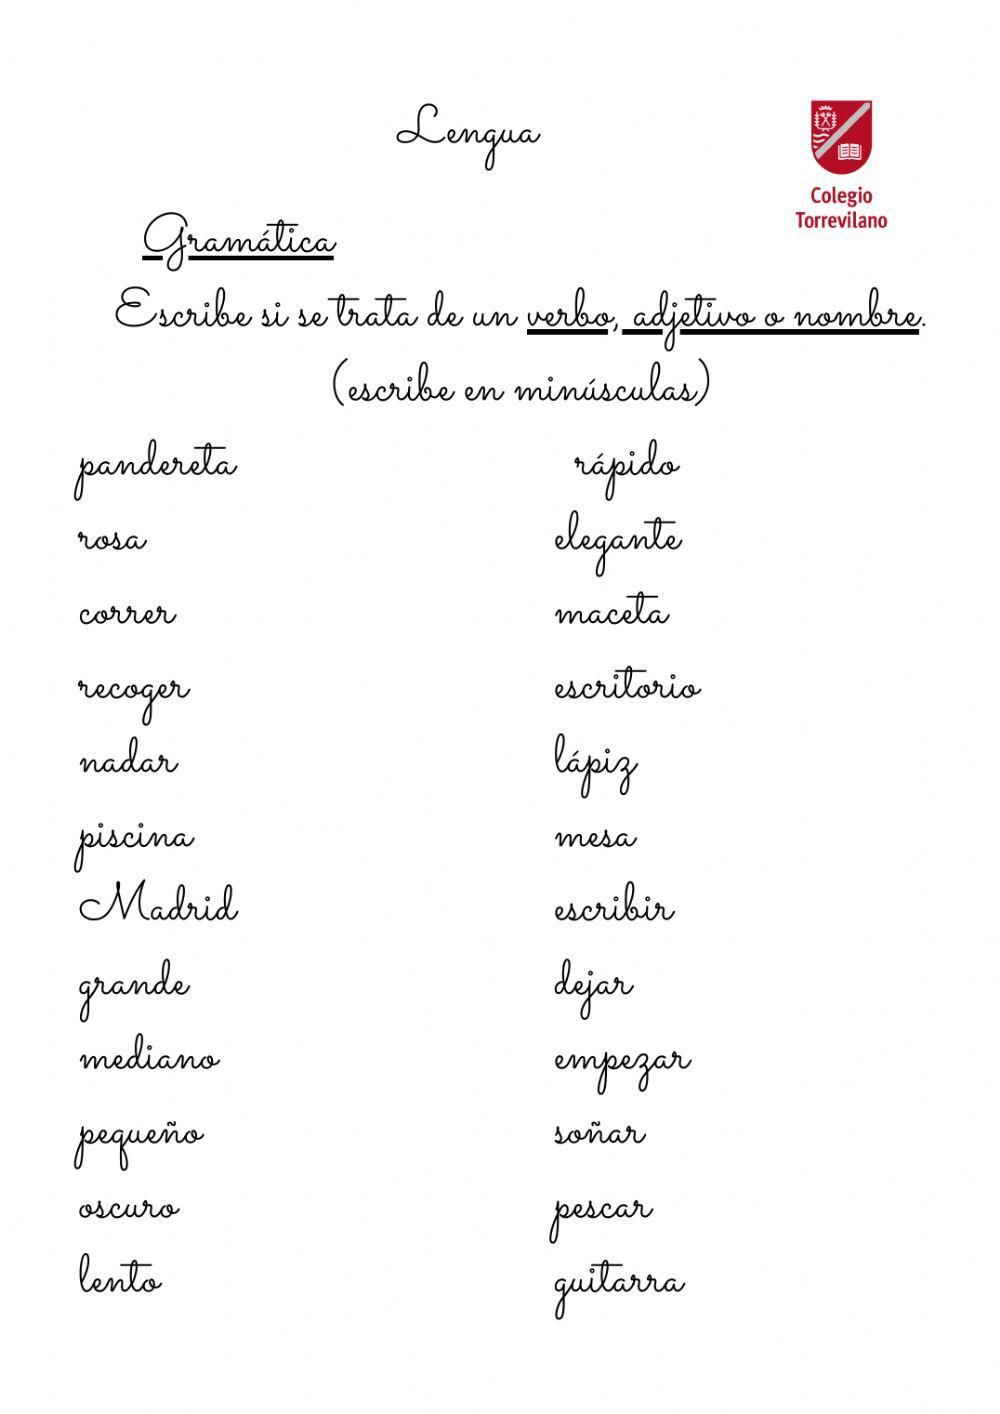 Lengua
Colegio
Torrevilano
Gramática
Escribe si se trata de un verbo, adjetivo o nombre.
(escribe en minúsculas)
pandereta
rosa
correr
recoger
nadar
piscina
Madrid
grande
mediano
pequeño
oscuro
lento
rápido
elegante
maceta
escritorio
lápiz
mesa
escribir
dejar
empezar
soñar
pescar
guitarra